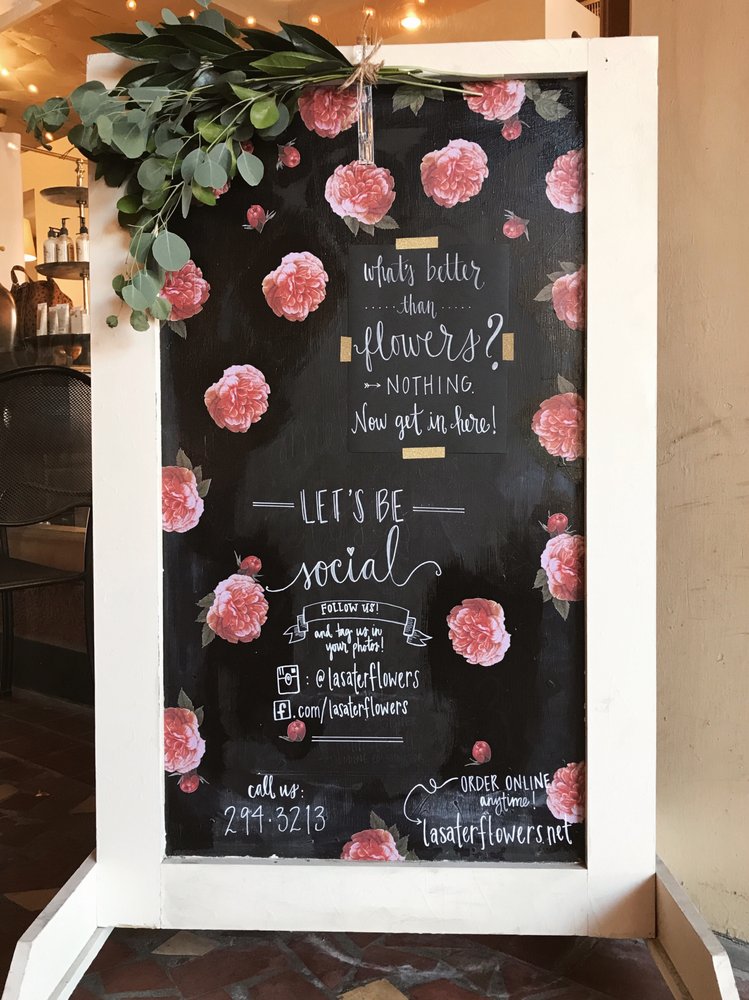 what's better
than
flowers?
NOTHING.
Now get in here!
LET'S BE
social
FOLLOW US!
and tag us in
your photos!
: @lasaterflowers
f.com/lasaterflowers
call us:
294.3213
ORDER ONLINE
anytime!
lasaterflowers.net